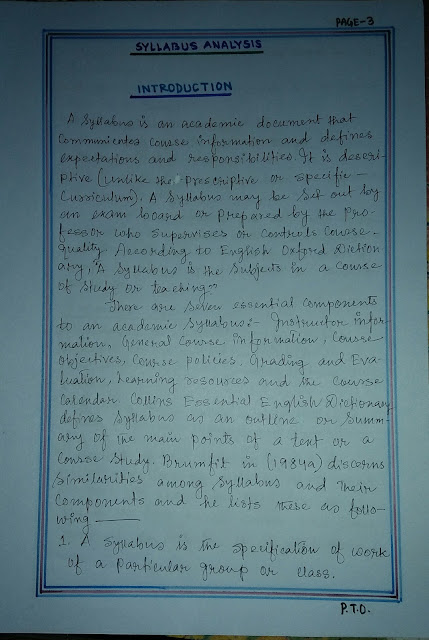 PAGE-3
SYLLABUS ANALYSIS
INTRODUCTION
A Syllabus is an academic document that
Communicates Course information and defines
expectations and responsibilities. It is descri-
ptive (unlike the Prescriptive or specific-
Curriculum). A Syllabus may be Set out by
an exam board or Prepared by the Pro-
fessor who Supervises or Controls Course-
quality. According to English Oxford Diction
ary, "A Syllabus is the Subjects in a Course
of Study or teaching."
There are Seven essential Components
to an academic Syllabus:- Instructor infor-
mation, General Course information, Course
objectives, Course policies, Grading and Eva-
luation, Learning resources and the Course
Calendar. Collins Essential English Dictionary
defines Syllabus as an outline or Summ-
ary of the main points of a text or a
Course Study. Brumfit in (1984a) discerns
Similarities among Syllabus and their
Components and he lists these as follo-
wing —
1. A Syllabus is the specification of work
of a Particular group or class.
P.T.O.